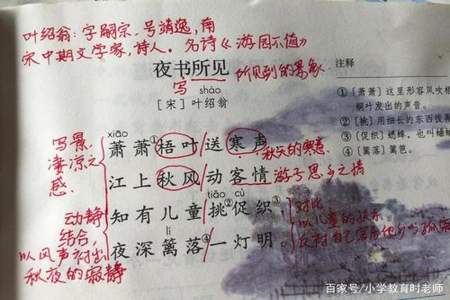 叶绍翁：字嗣宗，号靖逸，南
宋中期文学家，诗人。名诗《游园不值》
夜书所见
写
所见到的景象
shào
[宋]叶绍翁
注释
①〔萧萧〕这里形容风吹梧
桐叶发出的声音。
②〔挑〕用细长的东西拨弄
③〔促织〕蟋蟀，也叫蛐蛐
④〔篱落〕篱笆。
xiāo
萧萧①梧叶/送寒声
秋天的
江上秋风/动客情
游子思乡之情
tiǎo cù
知有儿童/挑②促织③
lí
夜深篱落④/一灯明。
写景
凄凉之
感
动静
结合，
以风声衬出
秋夜的寂静
对比
以儿童的快乐
反衬自己
百家号/小学教育时老师